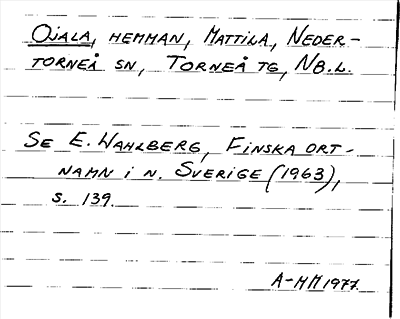 Ojala, hemman, Mattila, Neder-
torneå sn, Torneå tg, Nb.l.
Se E. Wahlberg, Finska ort-
namn i n. Sverige (1963),
s. 139.
A-HM 1977